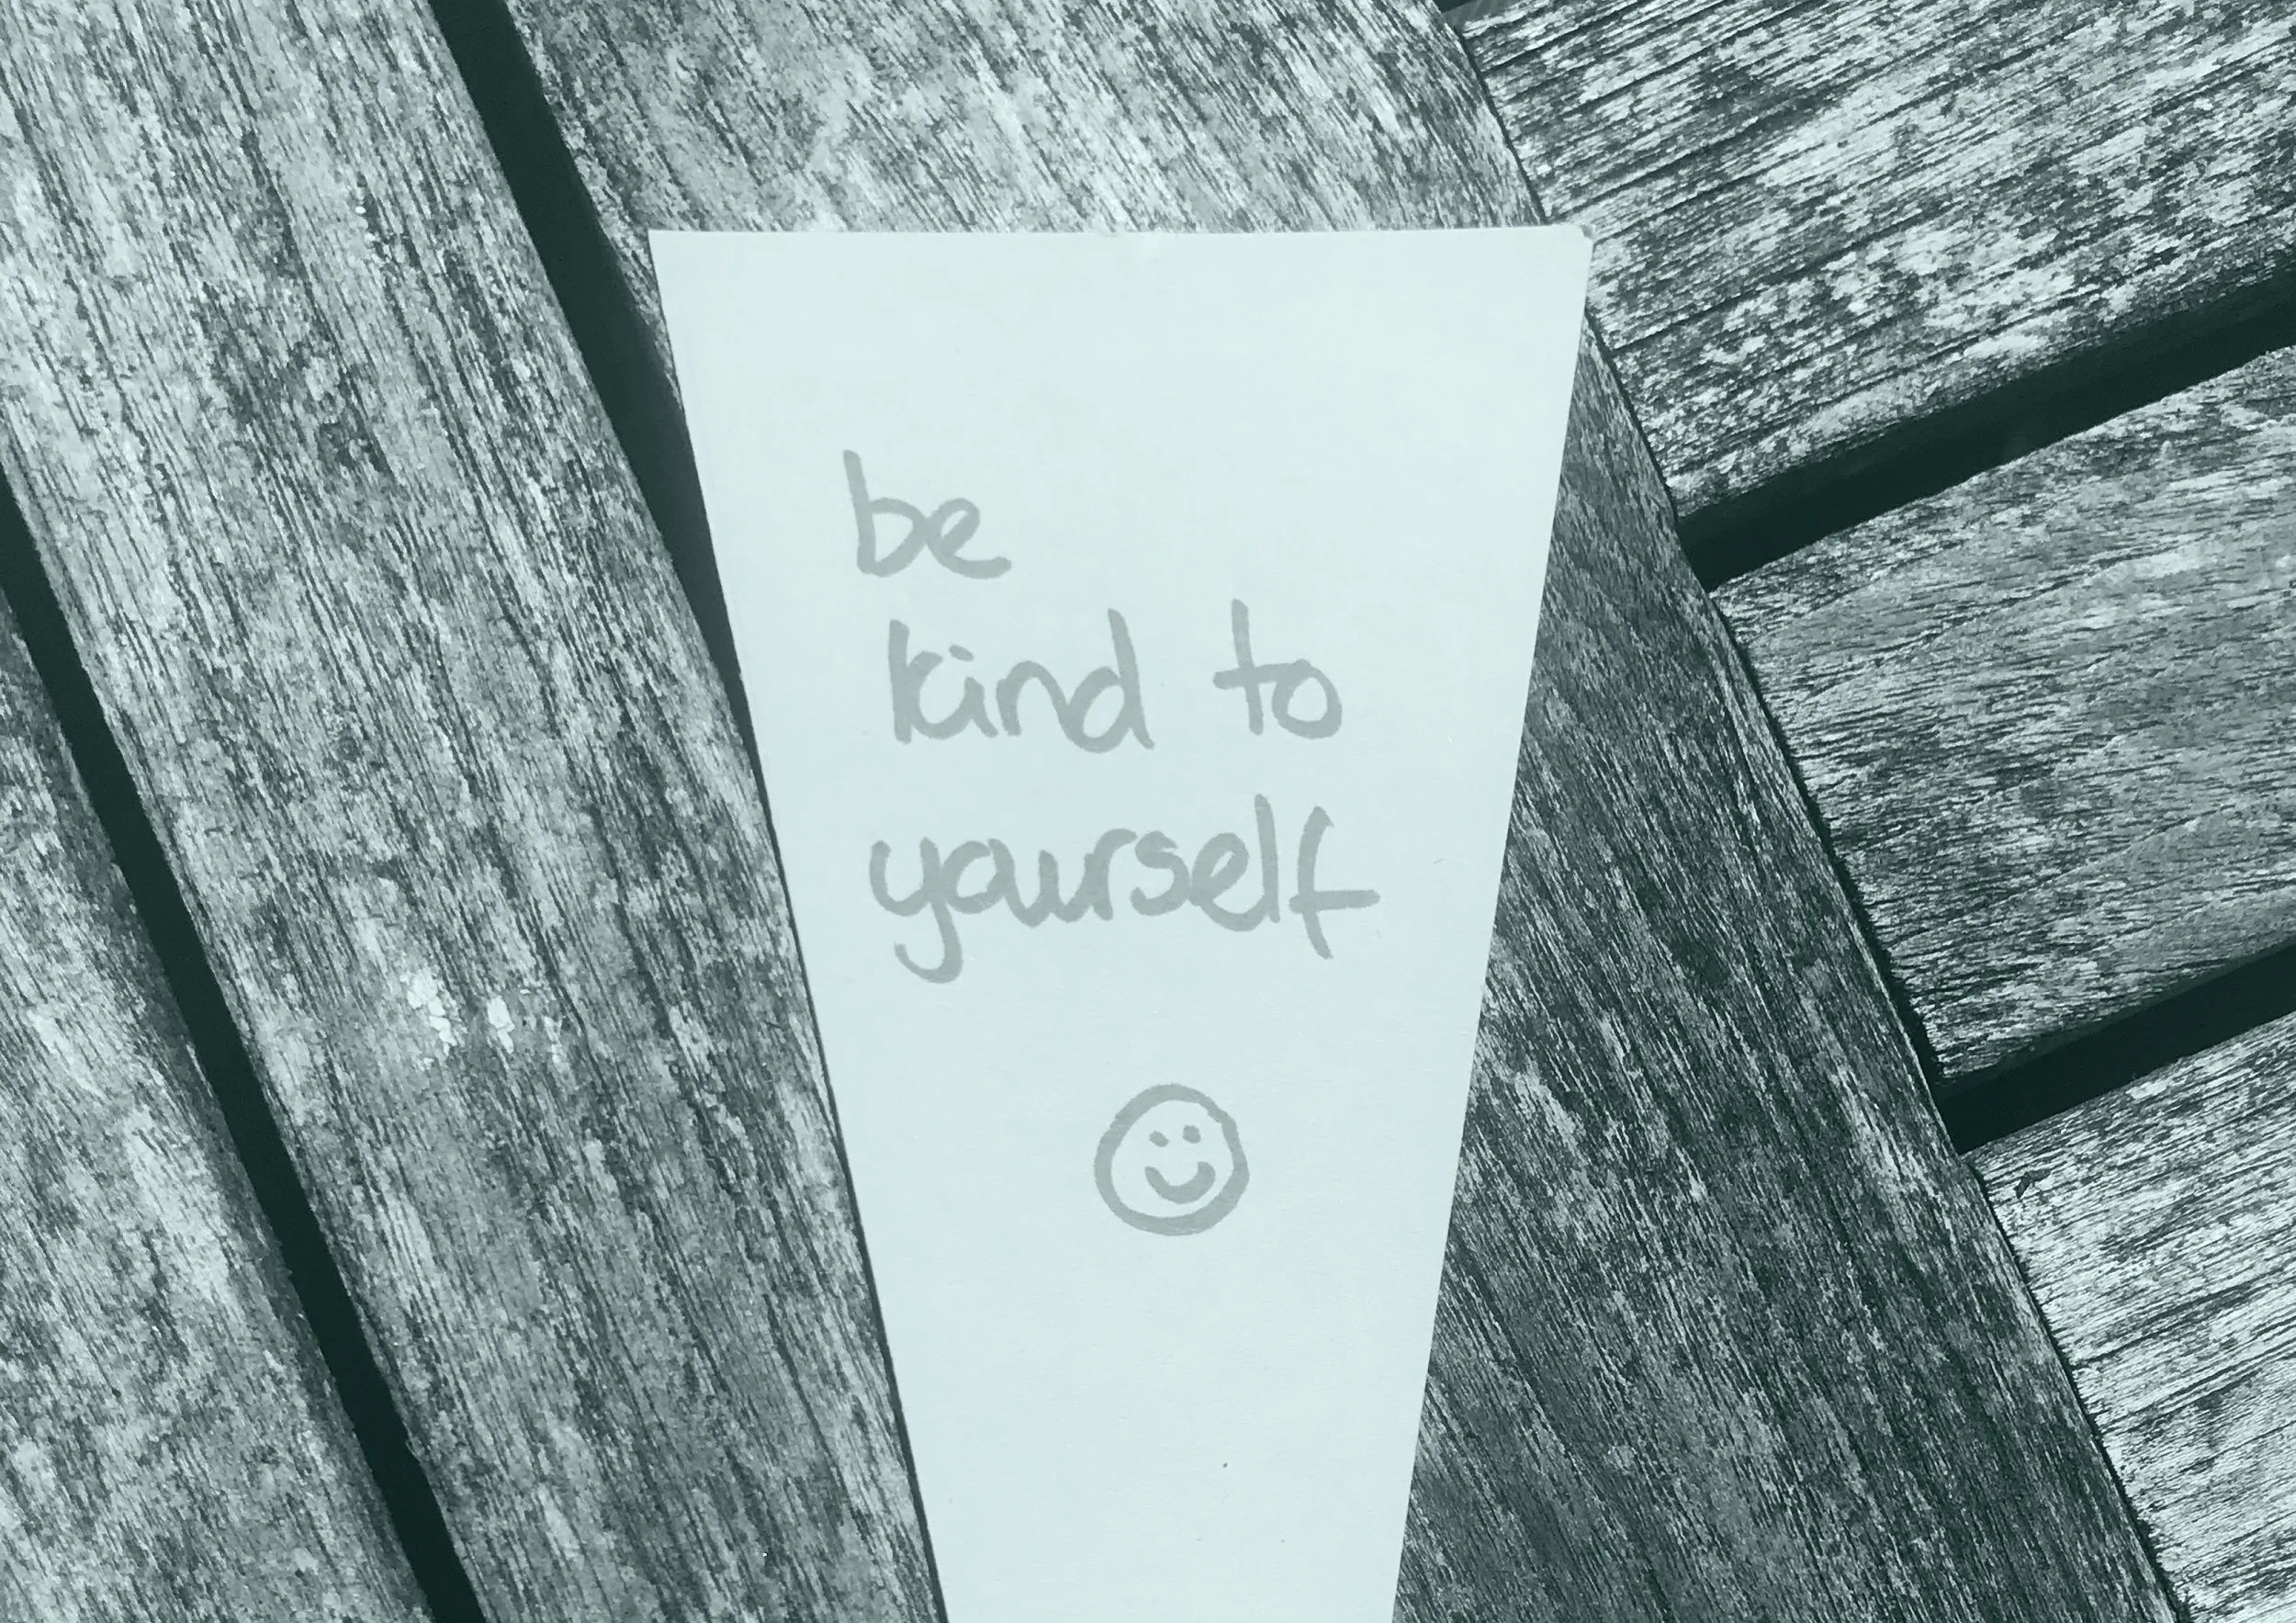 be
kind to
yourself